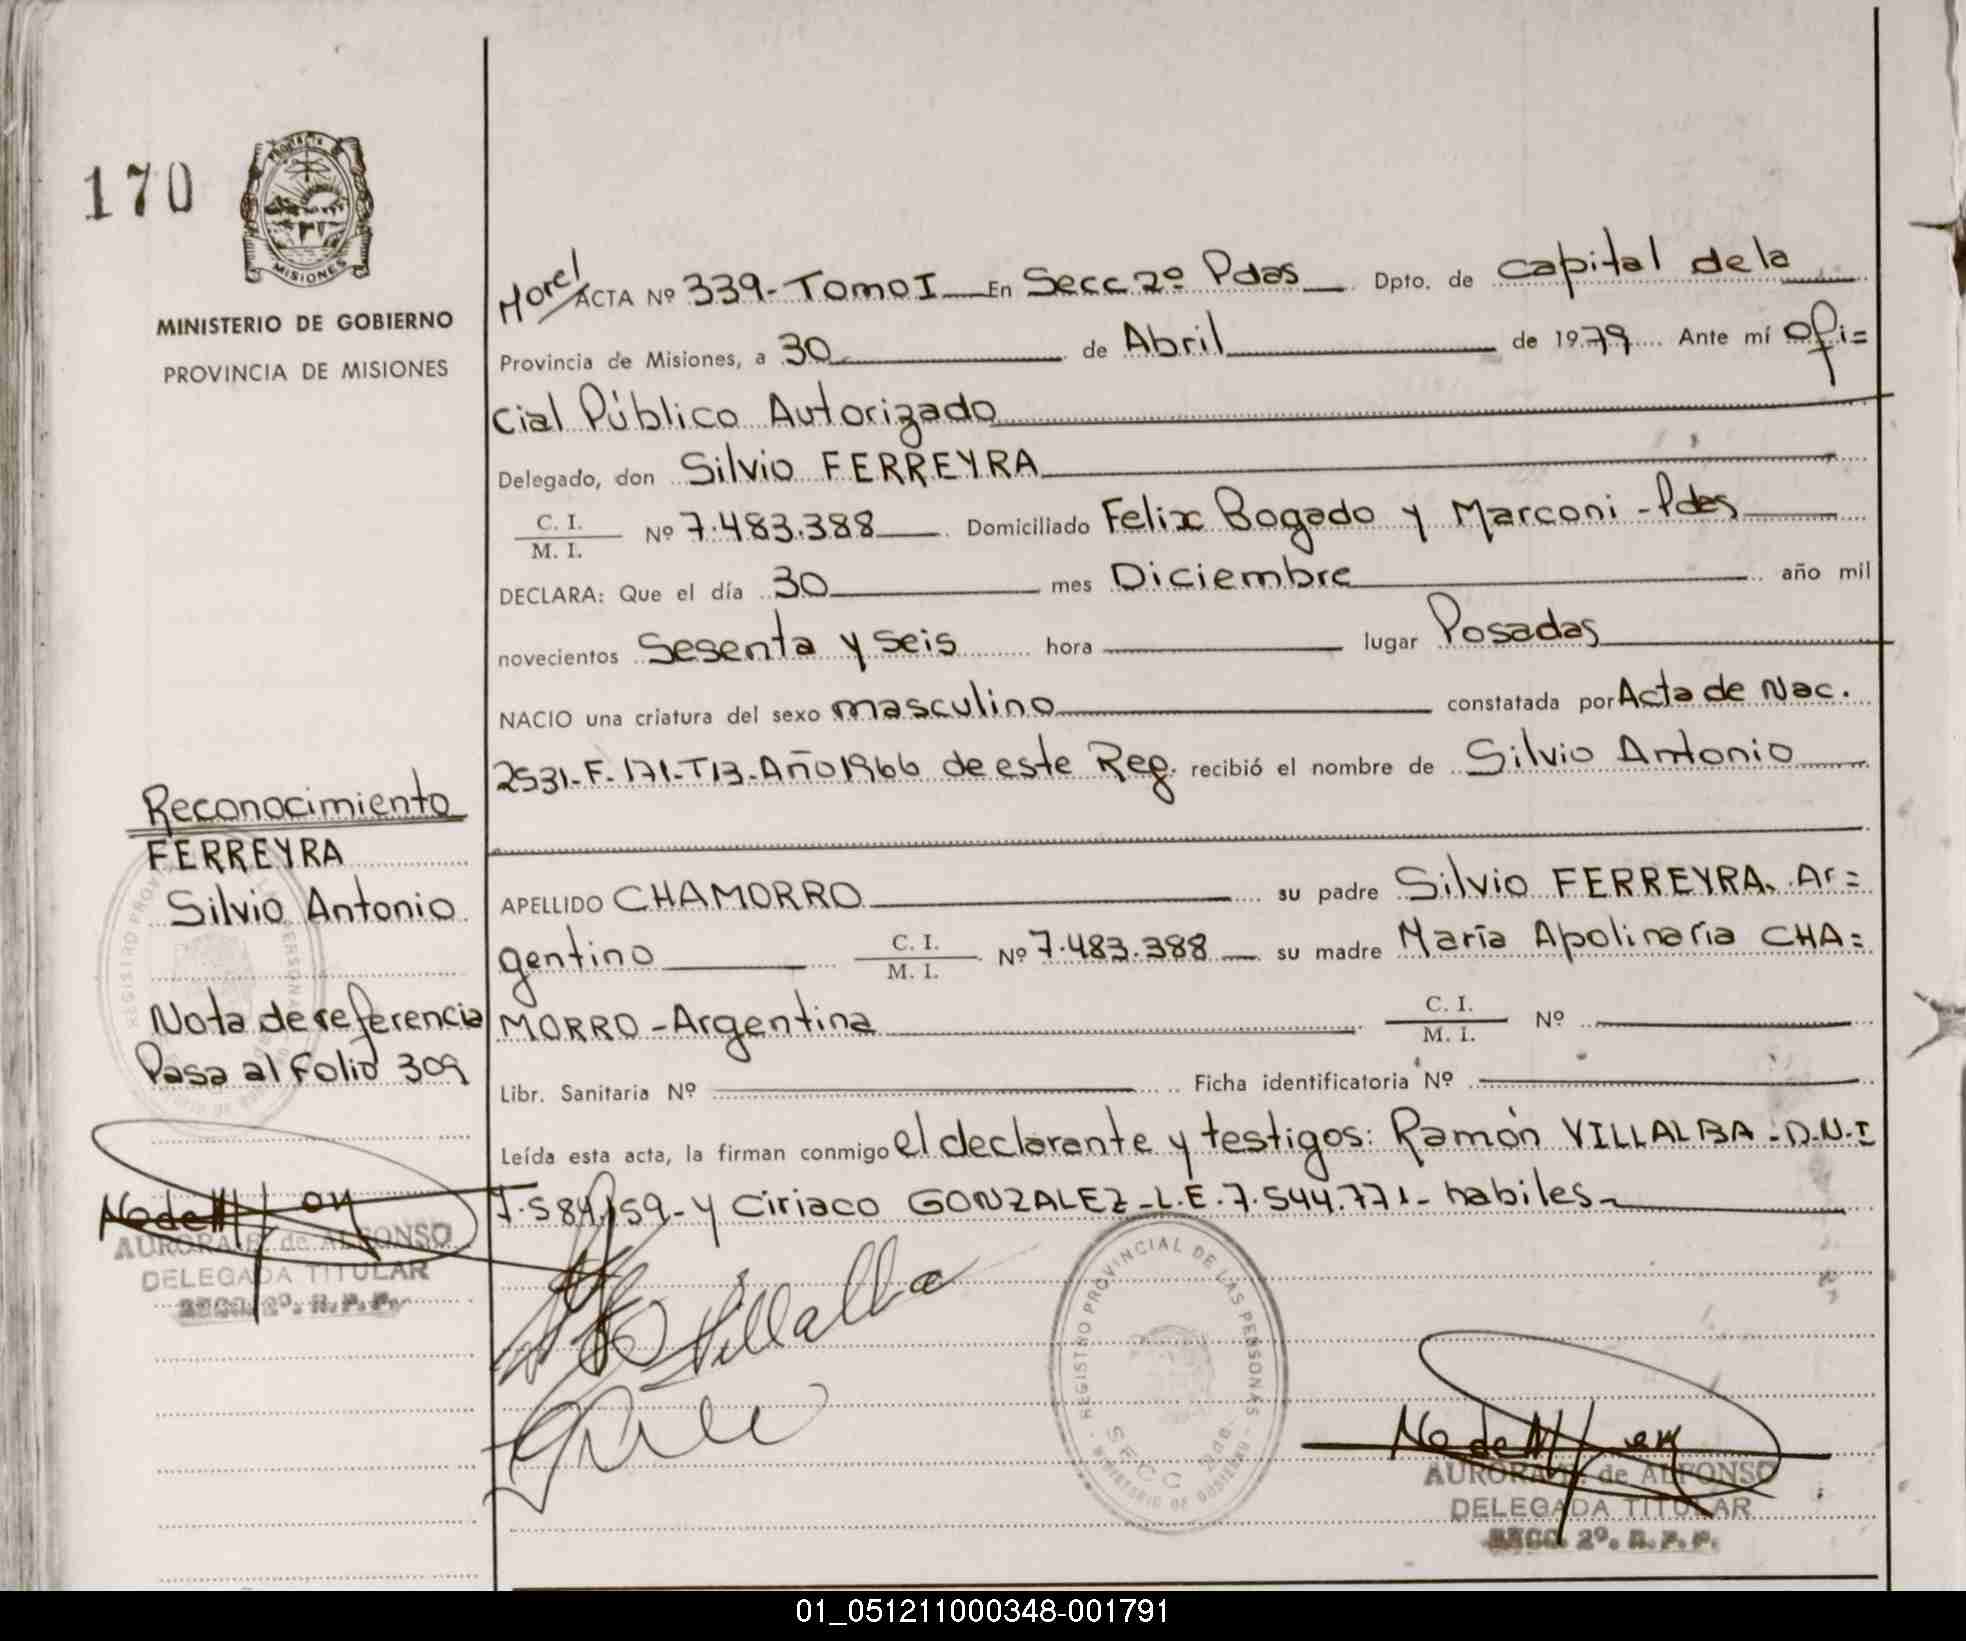 170
MISIONES
MINISTERIO DE GOBIERNO
PROVINCIA DE MISIONES
Reconocimiento
FERREYRA
Silvio Antonio
Nota de referencia
Pasa al Folio 309
AURORA de ALFONSO
DELEGADA TITULAR
SECC. 2º. R. P. P.
ACTA Nº 339-Tomo I En Secc 2º Pdas Dpto. de capital de la
Provincia de Misiones, a 30 de Abril de 1979 Ante mí Ofi=
cial Público Autorizado
Delegado, don Silvio FERREYRA
C. I.
M. I. Nº 7.483.388 Domiciliado Felix Bogado y Marconi - Pdas
DECLARA: Que el día 30 mes Diciembre año mil
novecientos Sesenta y seis hora lugar Posadas
NACIO una criatura del sexo masculino constatada por Acta de Nac.
2531-F-171-T13-Año 1966 de este Reg. recibió el nombre de Silvio Antonio
APELLIDO CHAMORRO su padre Silvio FERREYRA. Ar=
gentino C. I.
M. I. Nº 7.483.388 su madre María Apolinaria CHA=
MORRO - Argentina C. I.
M. I. Nº
Libr. Sanitaria Nº Ficha identificatoria Nº
Leída esta acta, la firman conmigo el declarante y testigos: Ramón VILLALBA - D.N.I
7.584.159 - y Ciriaco GONZALEZ - L.E. 7.544.771 - habiles -
Villalba
REGISTRO PROVINCIAL DE LAS PERSONAS
SECC 2da.
MINISTERIO DE GOBIERNO
AURORA de ALFONSO
DELEGADA TITULAR
SECC. 2º. R. P. P.
01_051211000348-001791